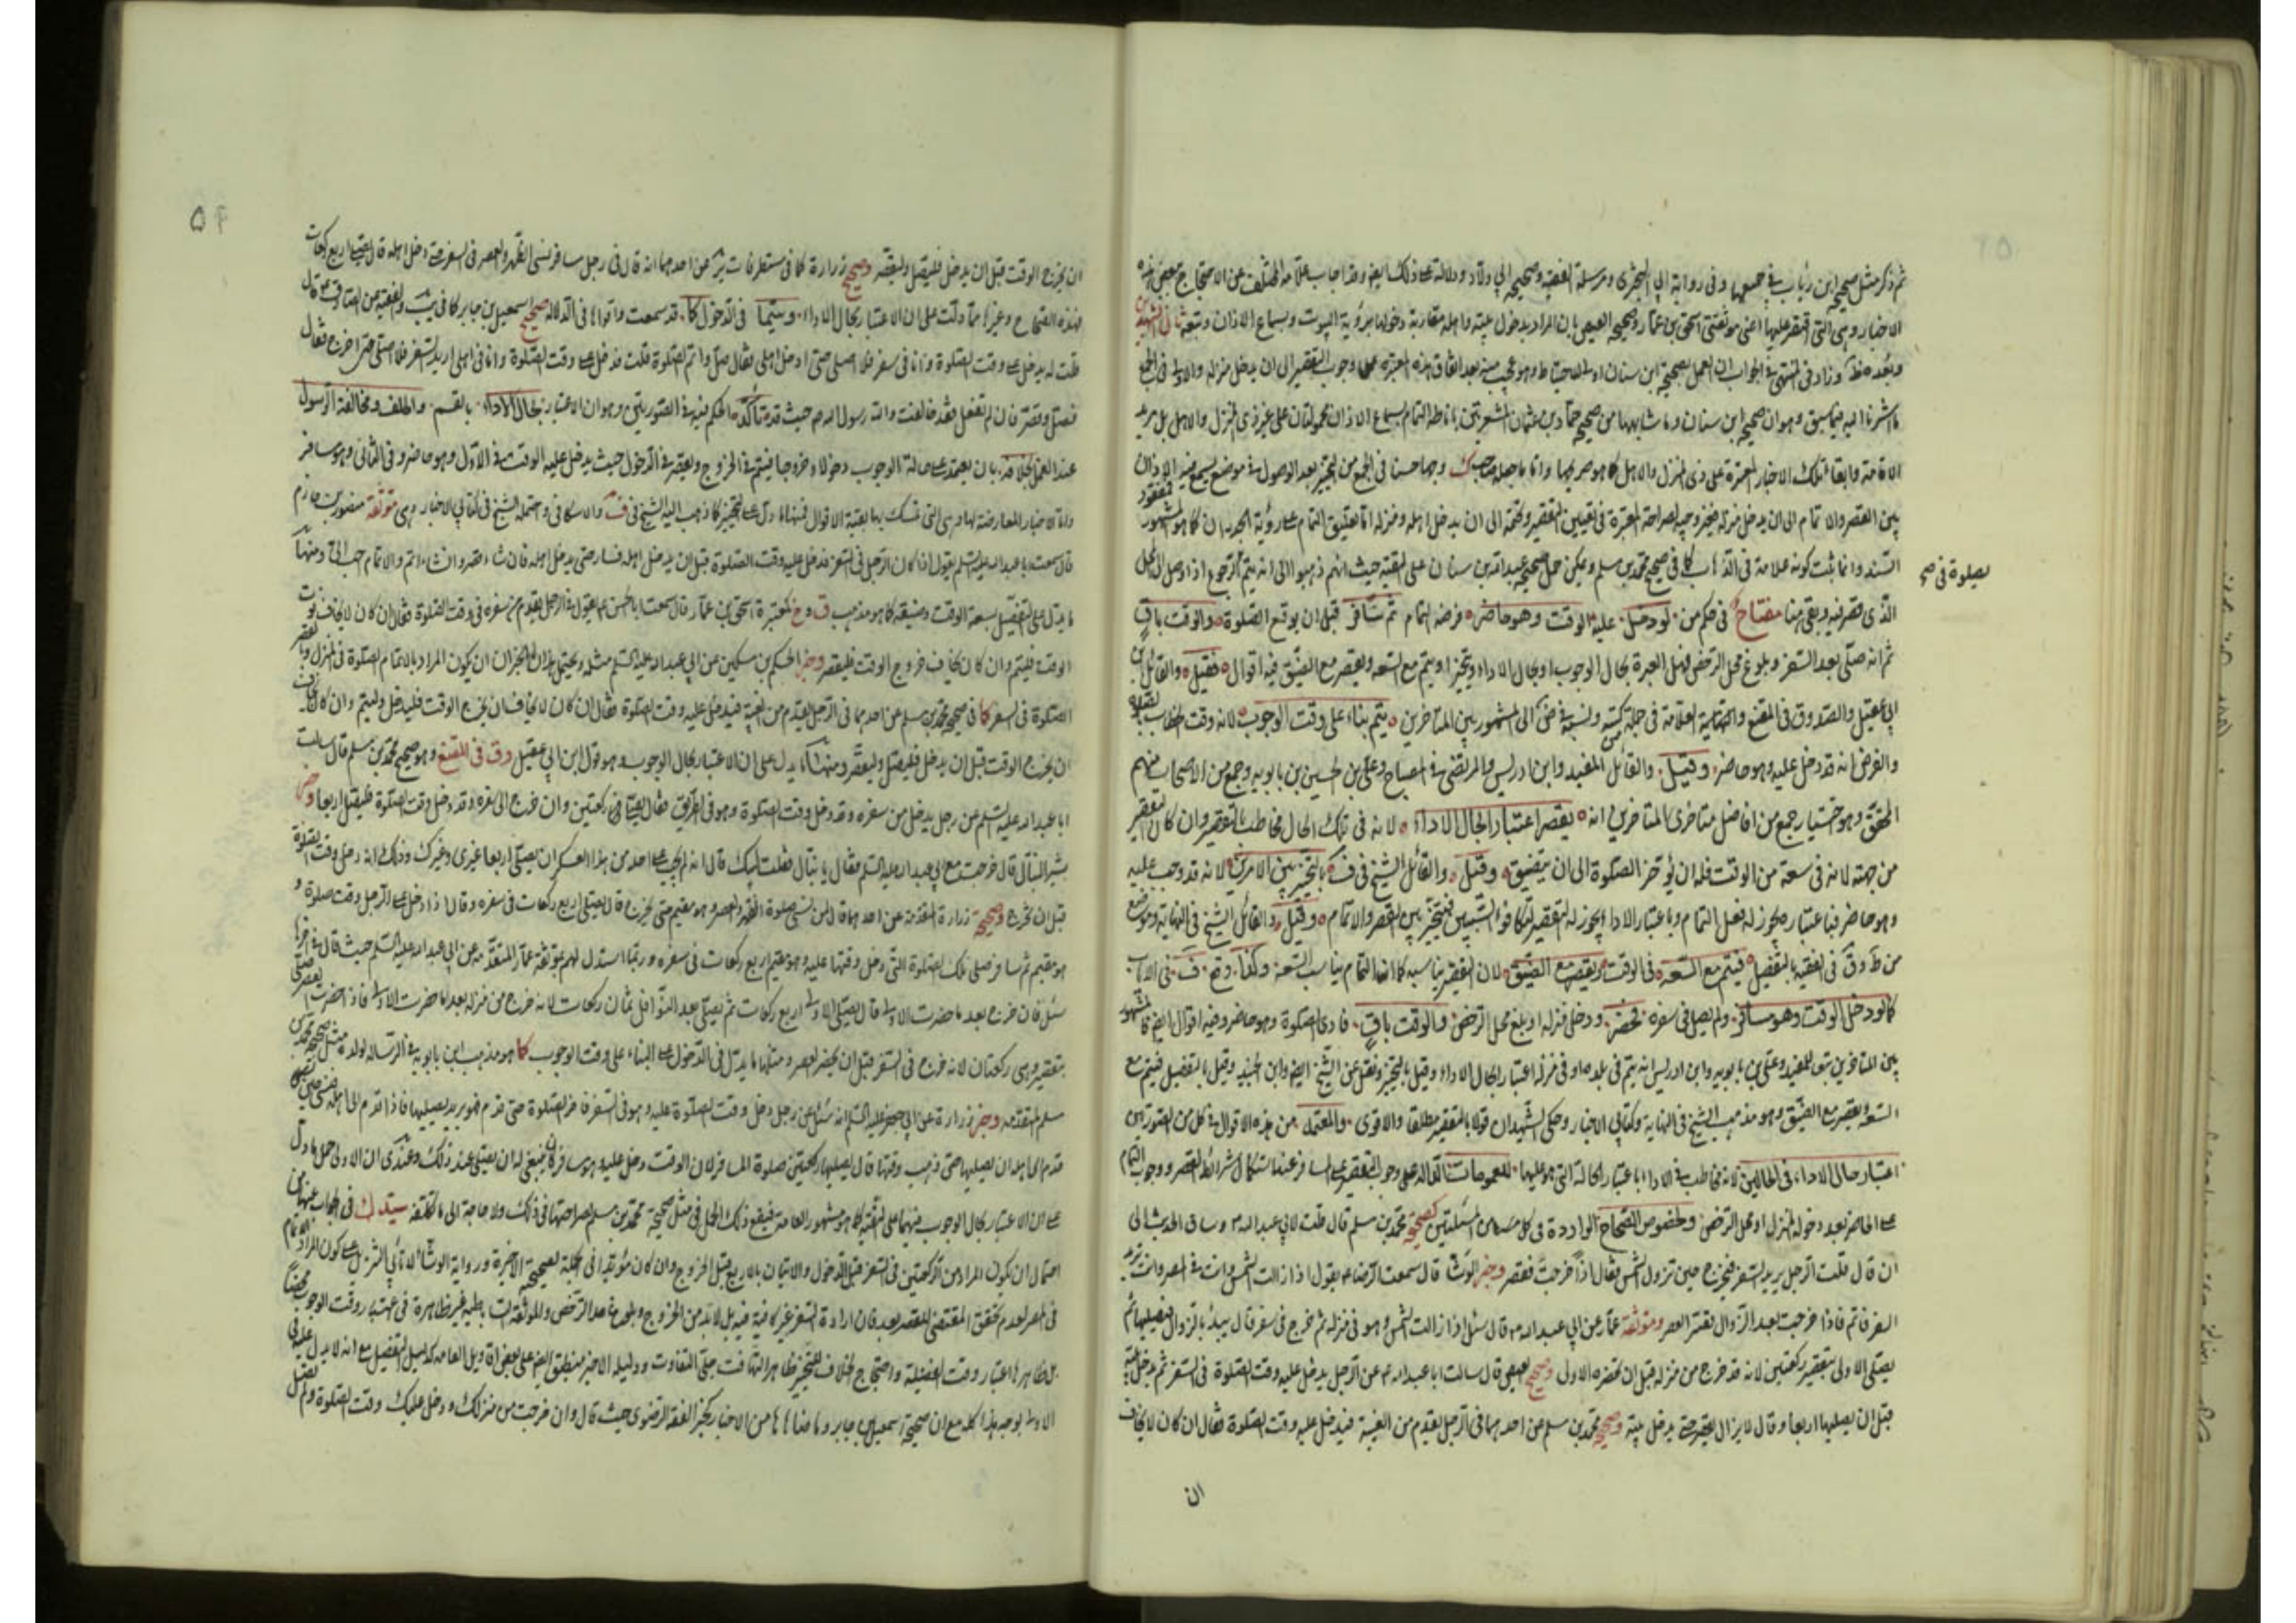 ثم ذكر مثل صحيح ابن رئاب في جميعها وفي رواية ابي البختري ومرسلة الفقيه وصحيح ابي ولاد ودلالة على ذلك ايضا وقد اجاب علامة المختلف عن الاحتجاج ببعض هذه
الاخبار وهي التي اقتصر عليها اعني موثقتي اسحق بن عمار وصحيح العيص بان المراد بدخول بيته واهله مقاربة دخولها برؤية البيوت وسماع الاذان وتبعه ثاني الشهيدين
وبعده ظ وزاد في المنتهى في الجواب ان العمل بصحيحة ابن سنان اولى للاحتياط وهو عجيب منه بعد اتفاق هذه المعتبرة على وجوب التقصير الى ان يدخل منزله والاولى في الجمع
ما اشرنا اليه فيما سبق وهو ان صحيح ابن سنان وما شابهها من صحيح حماد بن عثمان المشعرتين باناطة التمام بسماع الاذان محمولتان على غير ذي المنزل والاهل بل مريد
الاقامة وابقاء تلك الاخبار المعتبرة على ذي المنزل والاهل كما هو صريحها واما ما جعله صاحب ك وجها حسنا في الجمع من التخيير بعد الوصول في موضع يسمع فيه الاذان
بين القصر والاتمام الى ان يدخل منزله فغير وجيه لصراحة المعتبرة في تعيين التقصير وتحتمه الى ان يدخل اهله ومنزله اما تعليق التمام على رؤية الجدران كما هو المشهور فمفقود
السند وانما ثبت كونه علامة في الذهاب كما في صحيح محمد بن مسلم ويمكن حمل صحيح عبد الله بن سنان على التقية حيث انهم ذهبوا الى انه يتم في الرجوع اذا وصل الى المحل
الذي قصر فيه وبقي هنا مفتاح في حكم من لو دخل عليه الوقت وهو حاضر فرضه التمام ثم سافر قبل ان يوقع الصلوة والوقت باق
ثم انه صلى بعد السفر وبلوغ محل الترخص فهل العبرة بحال الوجوب او بحال الاداء ويتخير او يتم مع السعة ويقصر مع الضيق فيه اقوال فقيل والقائل ابن
ابي عقيل والصدوق في المقنع والعلامة في جملة من كتبه ونسبه في ض الى المشهور بين المتاخرين يتم بناء على وقت الوجوب لانه وقت خطاب بالصلوة
والفرض انه قد دخل عليه وهو حاضر وقيل والقائل المفيد وابن ادريس والمرتضى في المصباح وعلي بن الحسين بن بابويه وجمع من الاصحاب منهم
المحقق وهو اختيار جمع من افاضل متاخري المتاخرين انه يقصر اعتبارا لحال الاداء لانه في تلك الحال مخاطب بالتقصير وان كان التقصير
من جهته لانه في سعة من الوقت فله ان يؤخر الصلوة الى ان يتضيق وقيل والقائل الشيخ في ف بالتخيير بين الامرين لانه قد وجب عليه
وهو حاضر فباعتباره يجوز له فعل التمام وباعتبار الاداء يجوز له التقصير لتكافؤ السببين فيتخير بين القصر والاتمام وقيل والقائل الشيخ في النهاية وموضع
من ط وق في الفقيه بالتفصيل فيتم مع السعة في الوقت ويقصر مع الضيق لان التقصير يناسبه كما ان التمام يناسب السعة وكذا وقع ف في الاياب
كما لو دخل الوقت وهو مسافر ولم يصل في سفره فحضر ودخل منزله او بلغ محل الترخص والوقت باق فادى الصلوة وهو حاضر وفيه اقوال ايضا فالمشهور
بين المتاخرين تبعا للمفيد وعلي بن بابويه وابن ادريس انه يتم في بلده او في منزله اعتبارا لحال الاداء وقيل بالتخيير ونقل عن الشيخ ايضا وابن الجنيد وقيل بالتفصيل فيتم مع
السعة ويقصر مع الضيق وهو مذهب الشيخ في النهاية وكتابي الاخبار وحكى الشهيدان قولا بالتقصير مطلقا والاقوى والمعتمد من هذه الاقوال في كل من الصورتين
اعتبار حال الاداء في الحالين لانه مخاطب في الاداء باعتبار الحالة التي هو عليها للعمومات الدالة على وجوب التقصير على المسافر عند استكمال شرائط القصر ووجوب التمام
على الحاضر بعد دخوله المنزل او محل الترخص ولخصوص الصحاح الواردة في كل من المسئلتين كصحيح محمد بن مسلم قال قلت لابي عبد الله ع وساق الحديث الى
ان قال قلت الرجل يريد السفر فيخرج حين تزول الشمس فقال اذا خرجت فقصر وخبر الوشا قال سمعت الرضا ع يقول اذا زالت الشمس وانت في المصر وانت تريد
السفر فاتم فاذا خرجت بعد الزوال فقصر العصر وموثقة عمار عن ابي عبد الله ع قال سئل اذا زالت الشمس وهو في منزله ثم خرج في سفر قال يبدأ بالزوال فيصليها ثم
يصلي الاولى بتقصير ركعتين لانه قد خرج من منزله قبل ان تحضره الاولى وصحيح العيص قال سالت ابا عبد الله ع عن الرجل يدخل عليه وقت الصلوة في السفر ثم يدخل بيته
قبل ان يصليها قال اربعا وقال لا يزال يقصر حتى يدخل بيته وصحيح محمد بن مسلم عن احدهما في الرجل يقدم من الغيبة فيدخل عليه وقت الصلوة فقال ان كان لا يخاف
ان
بصلوة في صح
ان يخرج الوقت قبل ان يدخل فليصل وليقصر وصحيح زرارة كما في مستطرفات ئر عن احدهما انه قال في رجل مسافر نسي الظهر والعصر في السفر حتى دخل اهله قال يصلي اربع ركعات
فهذه الصحاح وغيرها مما دلت على ان الاعتبار بحال الاداء وسيما في الدخول كما قد سمعت واقواها في الدلالة صحيح اسمعيل بن جابر كما في يب والفقيه عن الصادق ع قال
قلت له يدخل علي وقت الصلوة وانا في سفر فلا اصلي حتى ادخل اهلي فقال صل واتم الصلوة قلت فدخل علي وقت الصلوة وانا في اهلي اريد السفر فلا اصلي حتى اخرج فقال
فصل وقصر فان لم تفعل فقد خالفت والله رسول الله ص حيث قد تاكد الحكم فيه في الصورتين وهو ان الاعتبار بحال الاداء بالقسم والحلف ومخالفة الرسول
عند العمل بخلافه بان يعمد على حالة الوجوب دخولا وخروجا فيتم في الخروج ويقصر في الدخول حيث يدخل عليه الوقت في الاول وهو حاضر وفي الثاني وهو مسافر
واما الاخبار المعارضة لها وهي التي تمسك بها بقية الاقوال فمنها ما دل على التخيير كما ذهب اليه الشيخ في ف والاسكافي واحتمله الشيخ في كتابي الاخبار وهي موثقة منصور بن حازم
قال سمعت ابا عبد الله عليه السلم يقول اذا كان الرجل في السفر فدخل عليه وقت الصلوة قبل ان يدخل اهله فسار حتى يدخل اهله فان شاء قصر وان شاء اتم والاتمام احب الي ومنها
ما يدل على التفصيل بسعة الوقت وضيقه كما هو مذهب ق وخ كمعتبرة اسحق بن عمار قال سمعت ابا الحسن ع يقول في الرجل يقدم من سفره في وقت الصلوة فقال ان كان لا يخاف فوت
الوقت فليتم وان كان يخاف خروج الوقت فليقصر وخبر الحكم بن مسكين عن ابي عبد الله عليه السلم مثله ويحتمل هذان الخبران ان يكون المراد بالاتمام الصلوة في المنزل وبالقصر
الصلوة في السفر كما في صحيح محمد بن مسلم عن احدهما في الرجل يقدم من الغيبة فيدخل عليه وقت الصلوة فقال ان كان لا يخاف ان يخرج الوقت فليدخل وليتم وان كان يخاف
ان يخرج الوقت قبل ان يدخل فليصل وليقصر ومنها ما يدل على ان الاعتبار بحال الوجوب وهو قول ابن ابي عقيل وق في المقنع وهو صحيح محمد بن مسلم قال سالت
ابا عبد الله عليه السلم عن رجل يدخل من سفره وقد دخل وقت الصلوة وهو في الطريق فقال يصلي ركعتين وان خرج الى سفره وقد دخل وقت الصلوة فليصل اربعا وخبر
بشير النبال قال خرجت مع ابي عبد الله عليه السلم فقال يا نبال فقلت لبيك قال انه لم يجب على احد من هذا العسكر ان يصلي اربعا غيري وغيرك وذلك انه دخل وقت الصلوة
قبل ان نخرج وصحيح زرارة المتقدمة عن احدهما قال لمن نسي صلوة الظهر والعصر وهو مقيم حتى يخرج قال يصلي اربع ركعات في سفره وقال اذا دخل على الرجل وقت صلوة و
هو مقيم ثم سافر صلى تلك الصلوة التي دخل وقتها عليه وهو مقيم اربع ركعات في سفره وربما استدل لهم بموثقة عمار المتقدمة عن ابي عبد الله عليه السلم حيث قال في اخرها
سئل فان خرج بعد ما حضرت الاولى قال يصلي الاولى اربع ركعات ثم يصلي بعد النوافل ثمان ركعات لانه خرج من منزله بعد ما حضرت الاولى فاذا حضرت العصر صلى العصر
بتقصير وهي ركعتان لانه خرج في السفر قبل ان يحضر العصر ومثلها ما يدل في الدخول على البناء على وقت الوجوب كما هو مذهب ابن بابويه في الرسالة لولده مثل صحيح محمد بن
مسلم المتقدمة وخبر زرارة عن ابي جعفر عليه السلم انه سئل عن رجل دخل وقت الصلوة عليه وهو في السفر فاخر الصلوة حتى قدم فهو يريد يصليها فاذا قدم الى اهله فنسي حين
قدم الى اهله ان يصليها حتى ذهب وقتها قال يصليها ركعتين صلوة المسافر لان الوقت دخل عليه وهو مسافر كان ينبغي له ان يصلي عند ذلك وعندي ان الاولى حمل ما دل
على ان الاعتبار بحال الوجوب فيهما على التقية كما هو مشهور العامة فيقع ذلك الحمل في مثل صحيح محمد بن مسلم لصراحتها في ذلك ولا حاجة الى ما تكلفه سيد ك في الجواب عنها من
احتمال ان يكون المراد من الركعتين في السفر قبل الدخول والاتيان بالاربع قبل الخروج وان كان مؤيدا في الجملة لصحيحه الاخيرة ورواية الوشا لا تابي التنزيل على كون المراد الاتمام
في المصر لعدم تحقق المقتضي للقصر بعد فان ارادة السفر غير كافية فيه بل لا بد من الخروج وبلوغ حد الترخص والموثقة الساباطية غير ظاهرة في اعتبار وقت الوجوب محضا
بل ظاهرها اعتبار وقت الفضيلة واحتجاج الخلاف للتخيير ظاهر التهافت جلي التفاوت ودليله الاخير منطبق ايضا على بعض اقاويل العامة كدليل التفصيل مع انه لا يدل عليه الا
الاولى بوجه هذا كله مع ان صحيح اسمعيل بن جابر وما ضاهاها من الاخبار كخبر الفقه الرضوي حيث قال وان خرجت من منزلك ودخل عليك وقت الصلوة ولم تصل